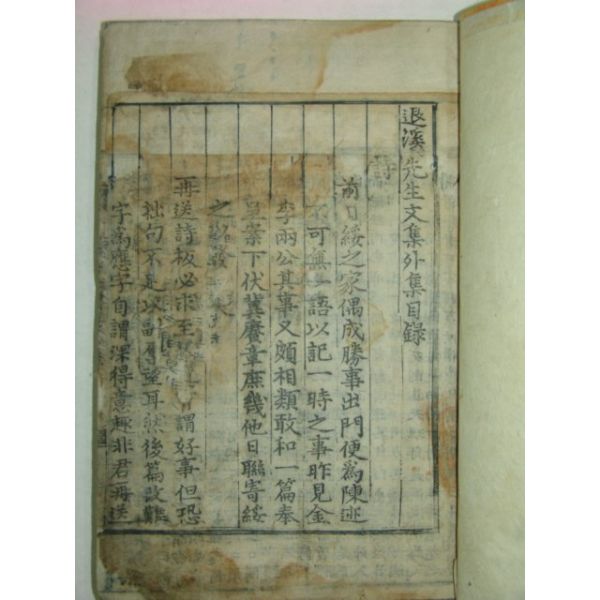 退溪先生文集外集目錄
前日綏之家偶成勝事出門便爲陳迹
不可無一語以記一時之事昨見金
李兩公其事又頗相類敢和一篇奉
呈案下伏冀賡章庶幾他日聯寄綏
之
再送詩板必求至 謂好事但恐
拙句不足以副厚望耳然後篇改難
字爲應字自謂深得意趣非君再送